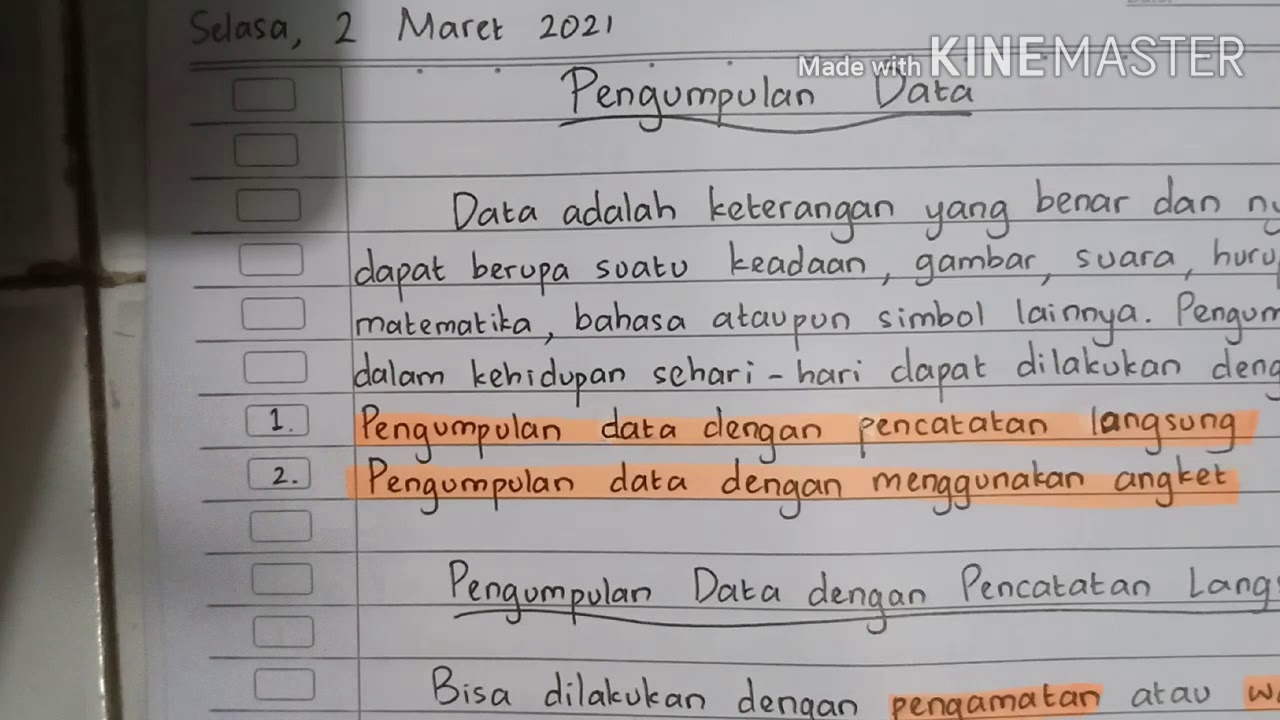 Selasa, 2 Maret 2021
Made with KINEMASTER
Pengumpulan Data
Data adalah keterangan yang benar dan
dapat berupa suatu keadaan, gambar, suara,
matematika, bahasa ataupun simbol lainnya.
dalam kehidupan sehari-hari dapat dilakukan
1. Pengumpulan data dengan pencatatan langsung
2. Pengumpulan data dengan menggunakan angket
Pengumpulan Data dengan Pencatatan
Bisa dilakukan dengan pengamatan atau